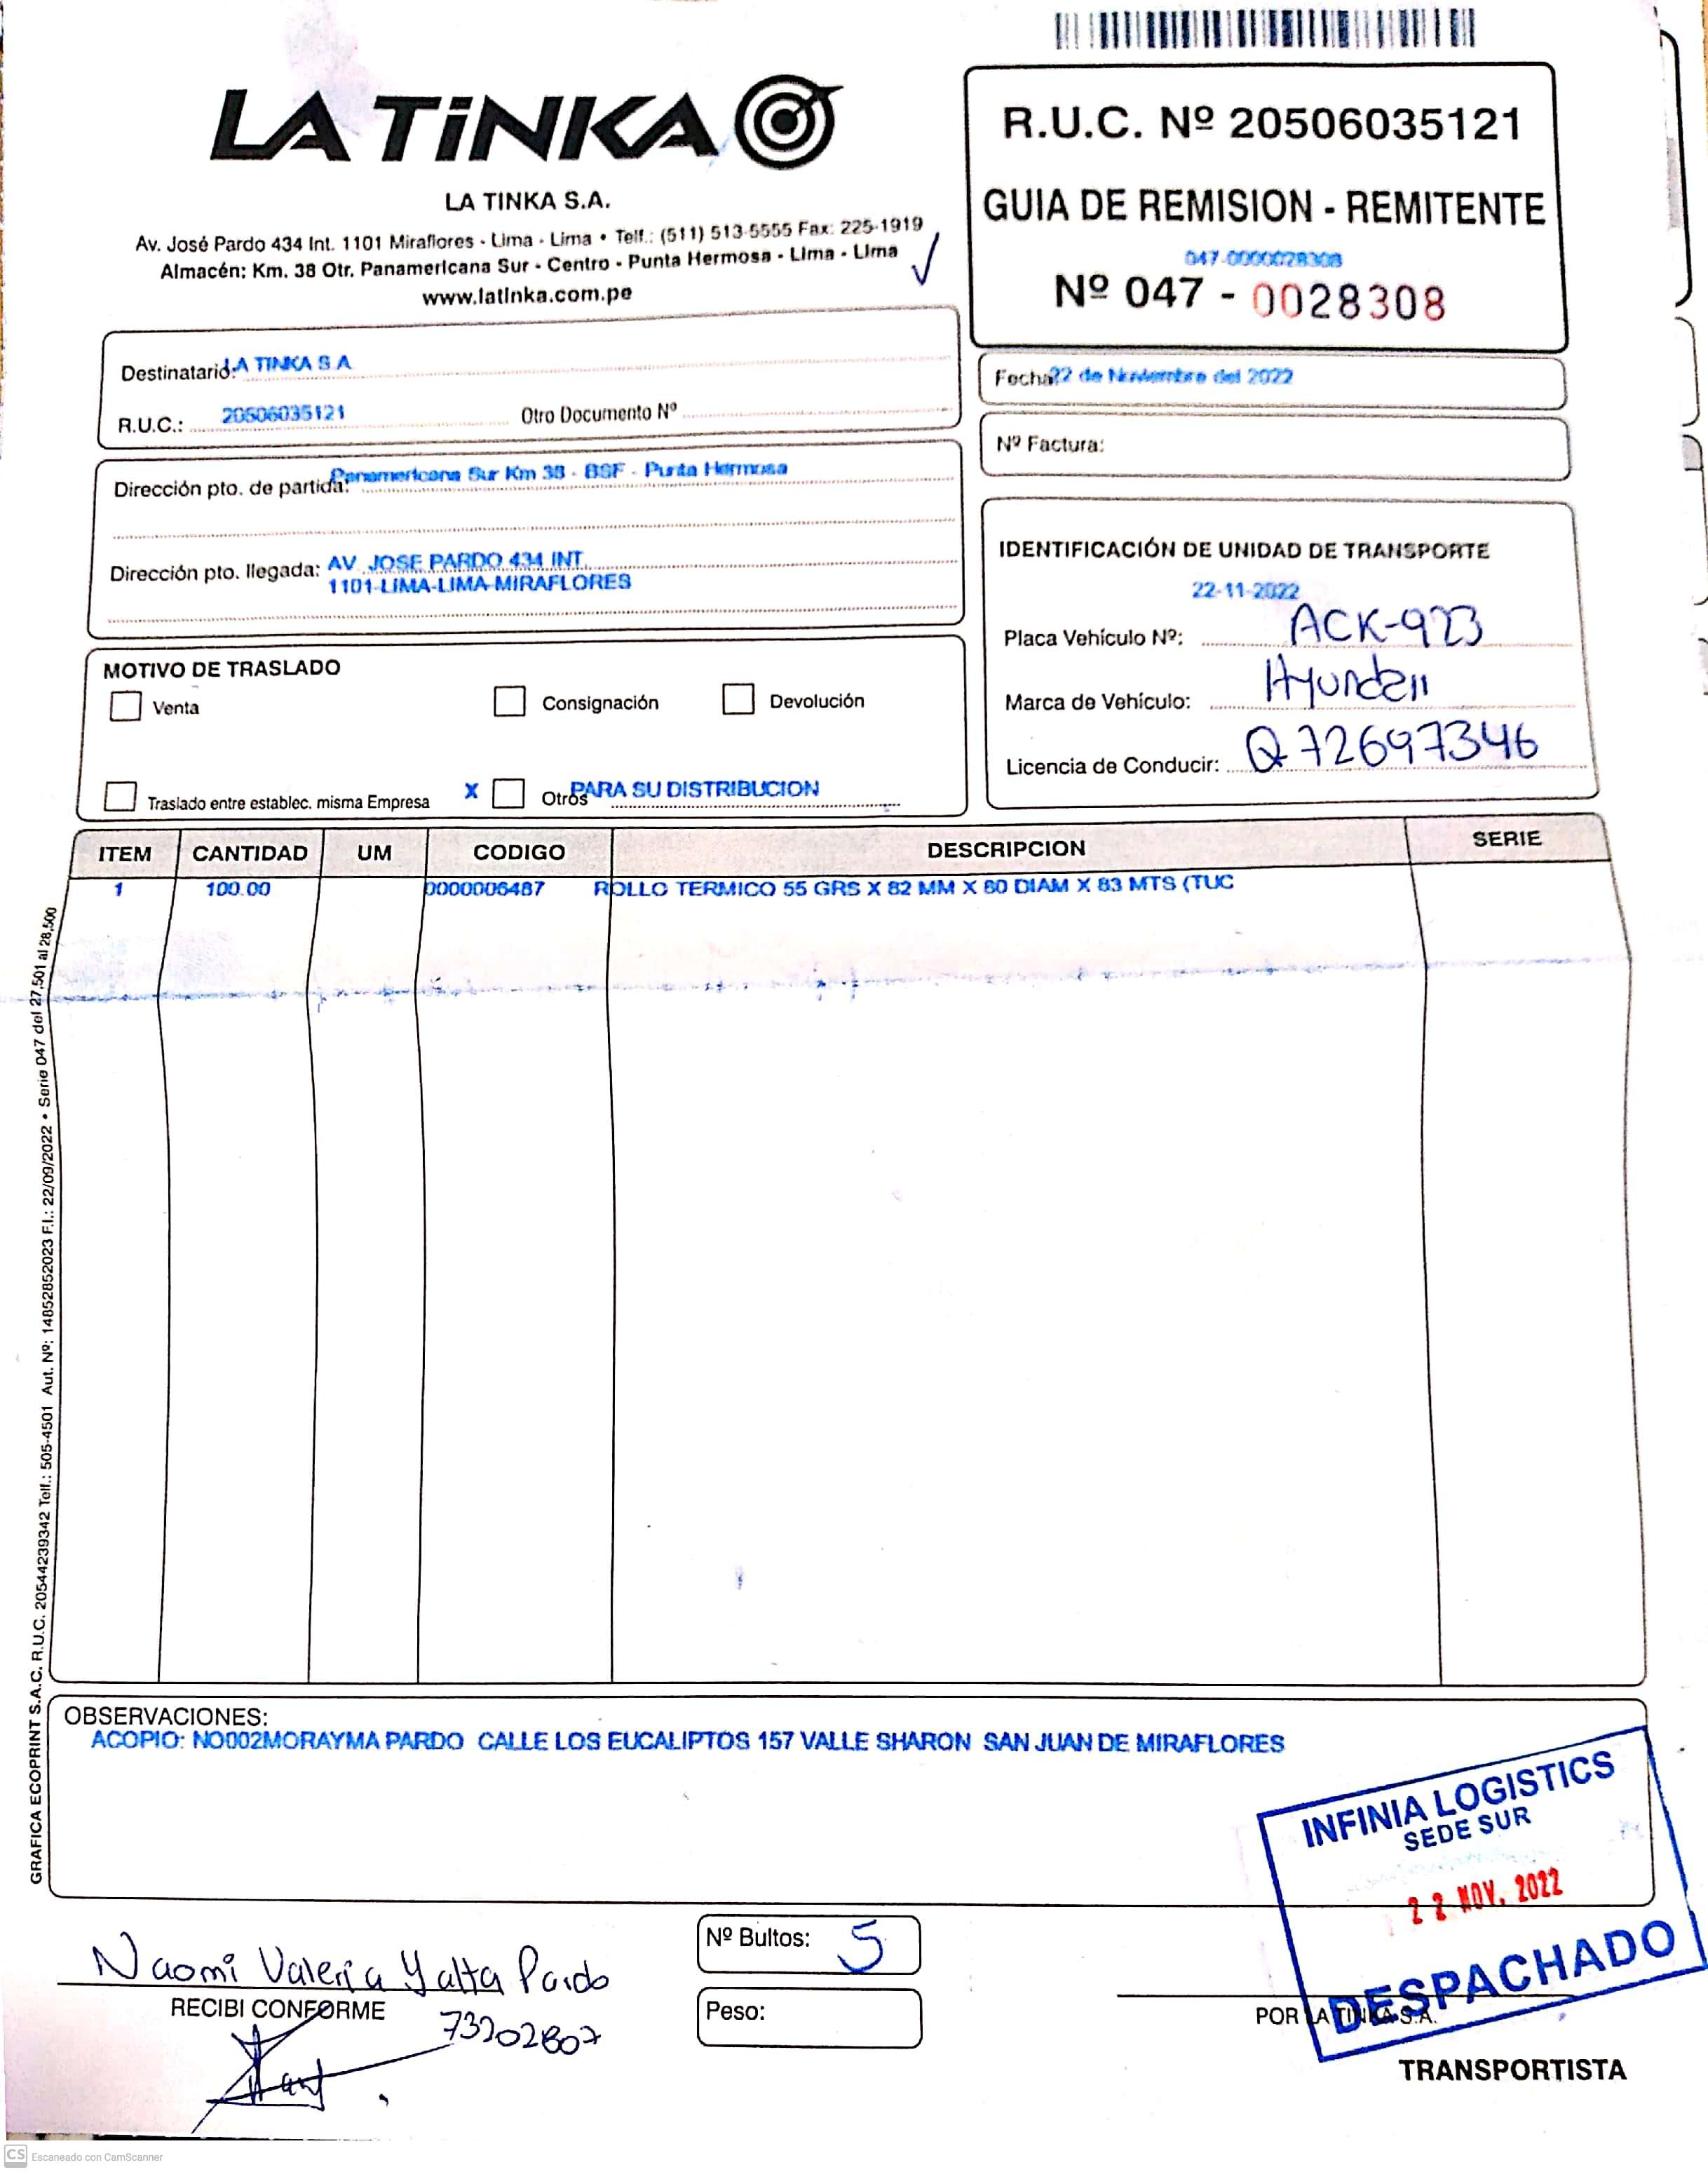 LA TiNKA
LA TINKA S.A.
Av. José Pardo 434 Int. 1101 Miraflores - Lima - Lima • Telf.: (511) 513-5555 Fax: 225-1919
Almacén: Km. 38 Otr. Panamericana Sur - Centro - Punta Hermosa - Lima - Lima
www.latinka.com.pe
R.U.C. Nº 20506035121
GUIA DE REMISION - REMITENTE
047-0000028308
Nº 047 - 0028308
Destinatario: LA TINKA S.A
R.U.C.: 20506035121 Otro Documento Nº
Fecha: 22 de Noviembre del 2022
Nº Factura:
Dirección pto. de partida: Panamericana Sur Km 38 - BSF - Punta Hermosa
Dirección pto. llegada: AV JOSE PARDO 434 INT.
1101-LIMA-LIMA-MIRAFLORES
IDENTIFICACIÓN DE UNIDAD DE TRANSPORTE
22-11-2022
Placa Vehículo Nº: ACK-923
Marca de Vehículo: Hyundai
Licencia de Conducir: Q72697346
MOTIVO DE TRASLADO
Venta Consignación Devolución
Traslado entre establec. misma Empresa X Otros PARA SU DISTRIBUCION
ITEM CANTIDAD UM CODIGO DESCRIPCION SERIE
1 100.00 0000006487 ROLLO TERMICO 55 GRS X 82 MM X 80 DIAM X 83 MTS (TUC
GRAFICA ECOPRINT S.A.C. R.U.C. 20544239342 Telf.: 505-4501 Aut. Nº: 14852852023 F.I.: 22/09/2022 • Serie 047 del 27,501 al 28,500
OBSERVACIONES:
ACOPIO: NO002MORAYMA PARDO CALLE LOS EUCALIPTOS 157 VALLE SHARON SAN JUAN DE MIRAFLORES
INFINIA LOGISTICS
SEDE SUR
22 NOV. 2022
DESPACHADO
Naomi Valeria Yalta Pardo
RECIBI CONFORME
73202807
Nº Bultos: 5
Peso:
POR LA TINKA S.A.
TRANSPORTISTA
CS Escaneado con CamScanner